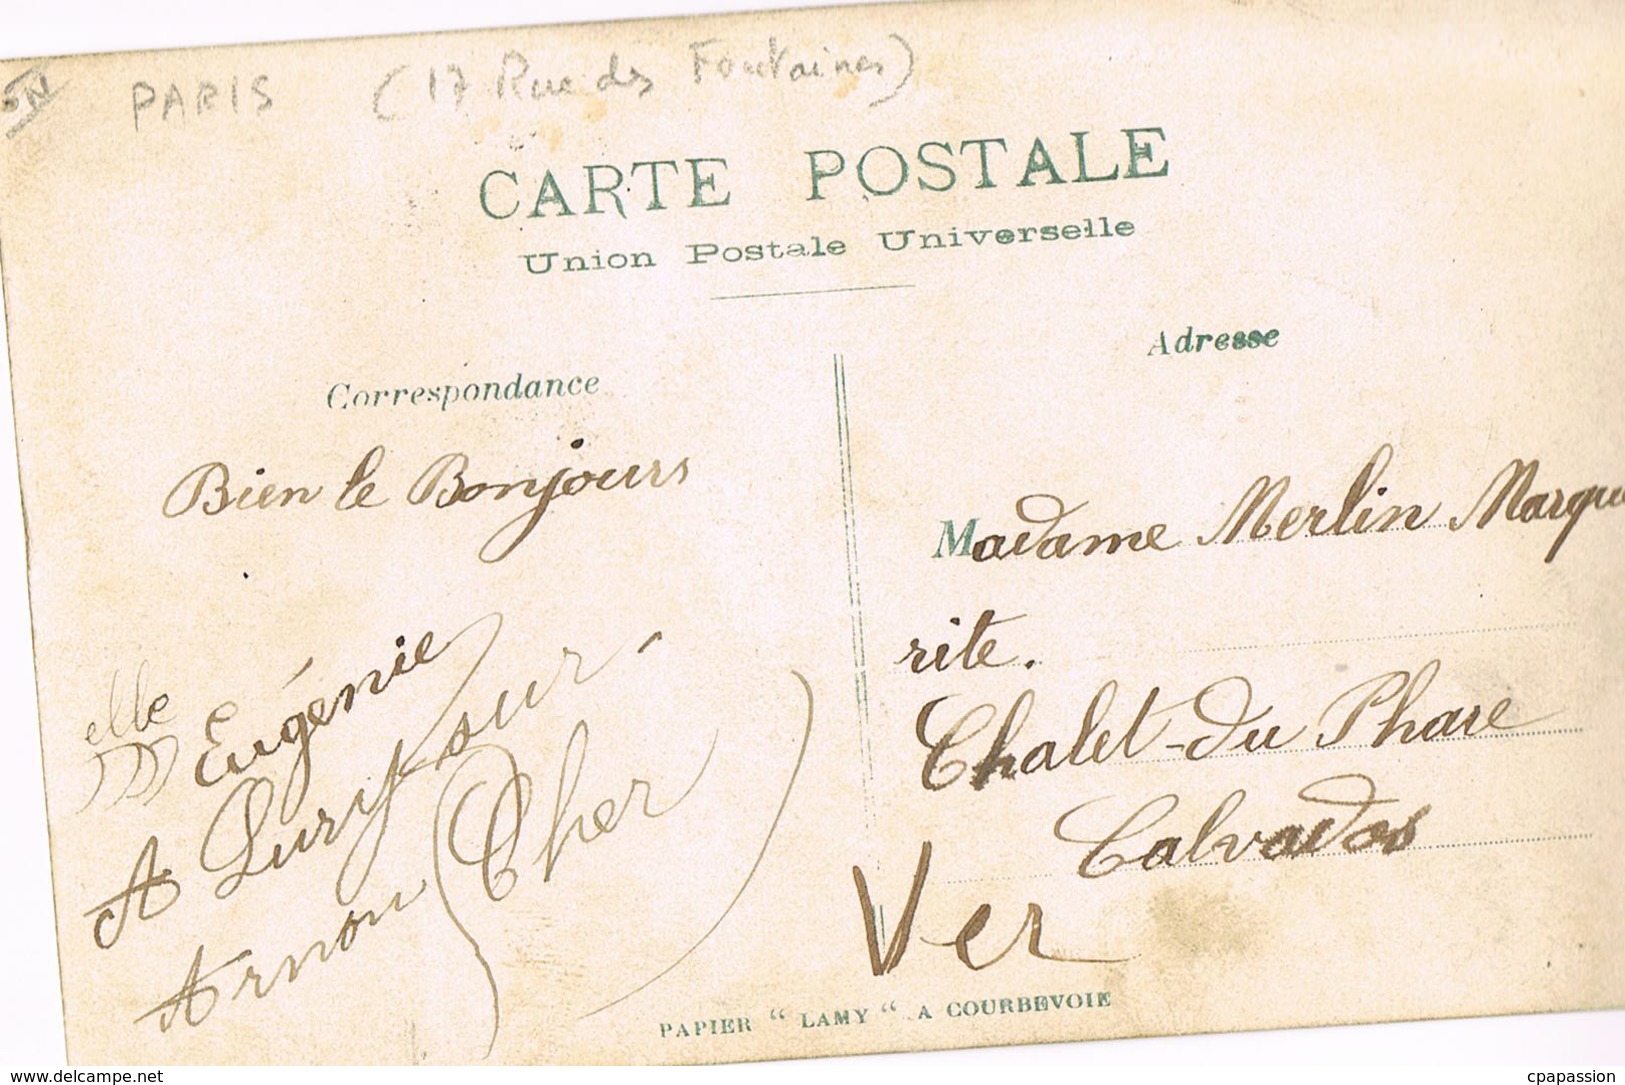 PARIS (17 Rue des Fontaines)
CARTE POSTALE
Union Postale Universelle
Correspondance
Bien le Bonjours
Eugénie
A Lury-sur-
Arnon (Cher)
Adresse
Madame Merlin Margue
rite.
Chalet-du Phare
Calvados
Ver
PAPIER "LAMY" A COURBEVOIE
www.delcampe.net
cpapassion